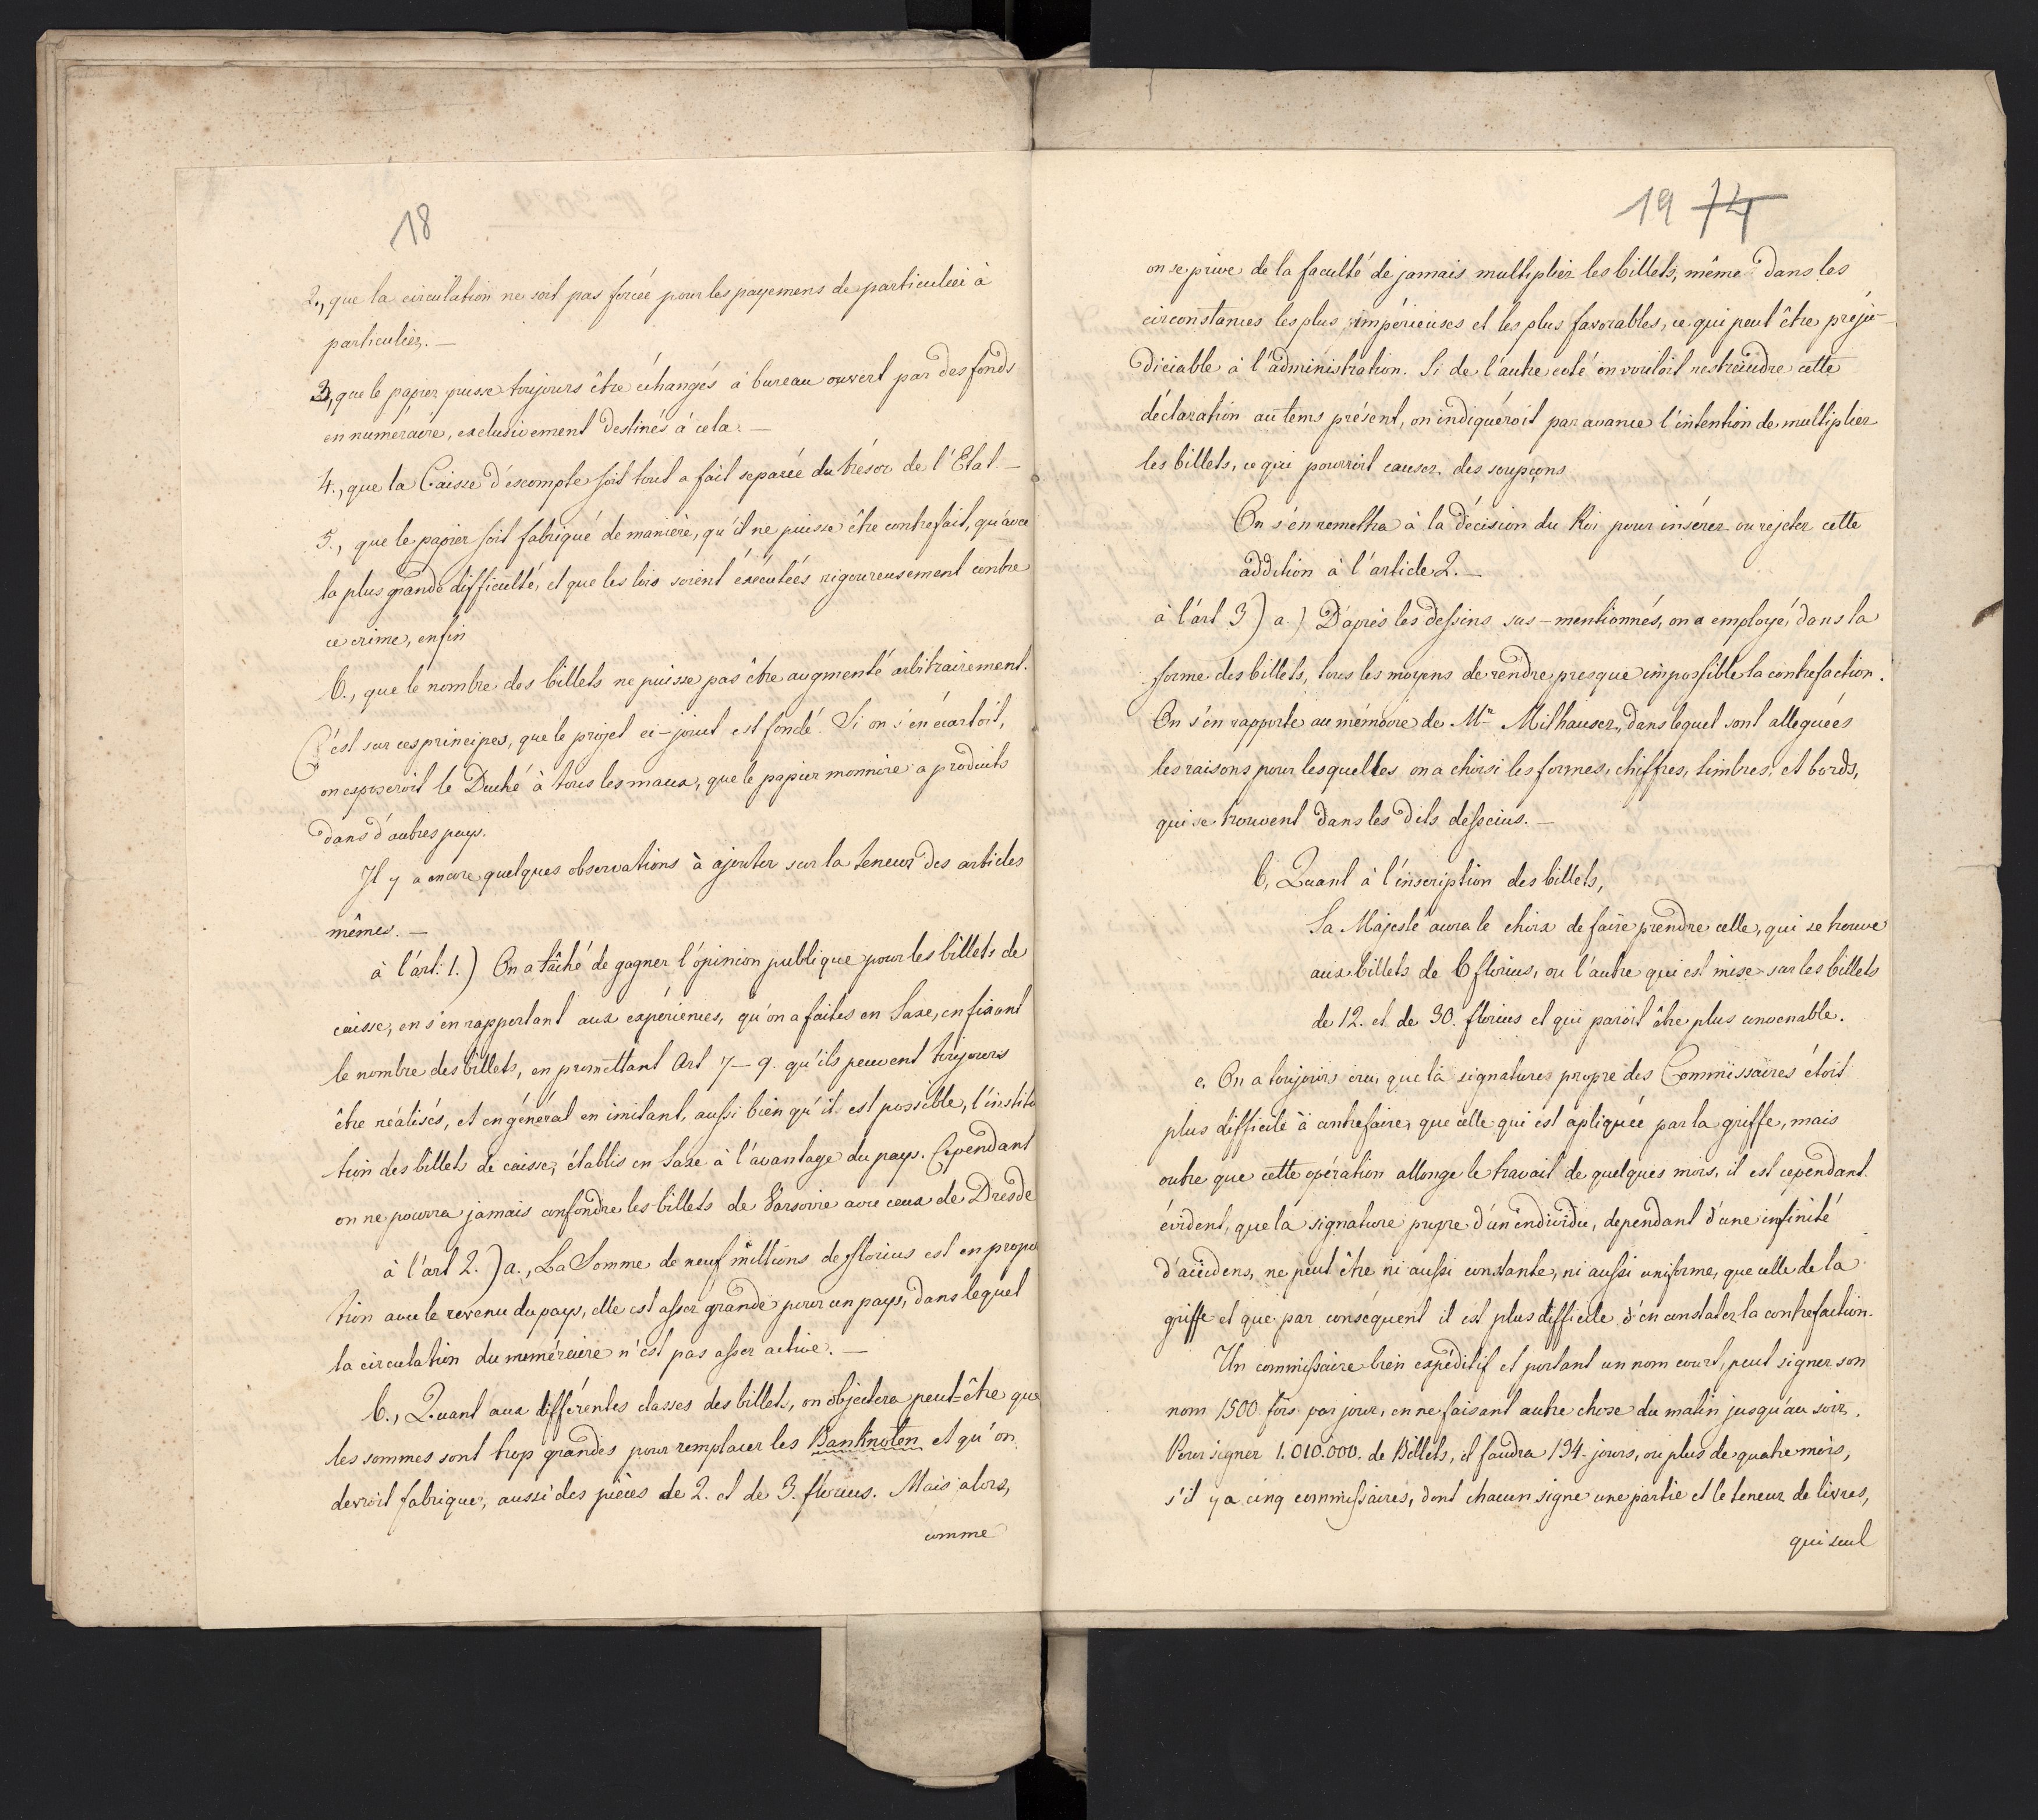 18
2., que la circulation ne soit pas forcée pour les payemens de particulier à
particulier. —
3, que le papier puisse toujours être échangés à bureau ouvert par des fonds
en numéraire, exclusivement destinés à cela. —
4., que la Caisse d'éscompte soit tout a fait separée du trésor de l'Etat. —
5., que le papier soit fabriqué de manière, qu'il ne puisse être contrefait, qu'avec
la plus grande difficulté, et que les lois soient éxécutées rigoureusement contre
ce crime, enfin
6., que le nombre des billets ne puisse pas être augmenté arbitrairement.
C'est sur ces principes, que le projet ci-joint est fondé. Si on s'en écartoit,
on exposeroit le Duché à tous les maux, que le papier monnoie a produits
dans d'autres pays.
Il y a encore quelques observations à ajouter sur la teneur des articles
mêmes. —
à l'art: 1.) On a tâché de gagner l'opinion publique pour les billets de
caisse, en s'en rapportant aux expériences, qu'on a faites en Saxe, en fixant
le nombre des billets, en promettant Art 7 — 9. qu'ils peuvent toujours
être réalisés, et en général en imitant, aussi bien qu'il est possible, l'institu
tion des billets de caisse, établis en Saxe à l'avantage du pays. Cependant
on ne pourra jamais confondre les billets de Varsovie avec ceux de Dresde
à l'art 2.) a., La Somme de neuf millions de florins est en propor
tion avec le revenu du pays, elle est assez grande pour un pays, dans lequel
la circulation du numéraire n'est pas assez active. —
b., Quant aux différentes classes des billets, on objectera peut-être que
les sommes sont trop grandes pour remplacer les Banknoten et qu'on
devroit fabriquer, aussi des pièces de 2. et de 3. florins. Mais alors,
comme
19 74
on se prive de la faculté de jamais multiplier les billets, même dans les
circonstances les plus impérieuses et les plus favorables, ce qui peut être préju-
diciable à l'administration. Si de l'autre coté on vouloit restreindre cette
déclaration au tems présent, on indiquéroit par avance l'intention de multiplier
les billets, ce qui pourroit causer des soupçons.
On s'en remettra à la décision du Roi pour insérer ou rejeter cette
addition à l'article 2. —
à l'art 3) a.) D'après les dessins sus-mentionnés, on a employé, dans la
forme des billets, tous les moyens de rendre presque impossible la contrefaction.
On s'en rapporte au mémoire de Mr Milhauser, dans lequel sont alleguées
les raisons pour lesquelles on a choisi les formes, chiffres, timbres, et bords,
qui se trouvent dans les dits desseins. —
b, Quant à l'inscription des billets,
Sa Majesté aura le choix de faire prendre celle, qui se trouve
aux billets de 6 florins, ou l'autre qui est mise sur les billets
de 12. et de 30. florins et qui paroit être plus convenable.
c, On a toujours cru, que la signature propre des Commissaires étoit
plus difficile à contrefaire, que celle qui est apliquée par la griffe, mais
outre que cette opération allonge le travail de quelques mois, il est cependant
évident, que la signature propre d'un individu, dependant d'une infinité
d'accidens, ne peut être ni aussi constante, ni aussi uniforme, que celle de la
griffe et que par conséquent il est plus difficile d'en constater la contrefaction.
Un commissaire bien expéditif et portant un nom court, peut signer son
nom 1500 fois par jour, en ne faisant autre chose du matin jusqu'au soir.
Pour signer 1.010.000. de Billets, il faudra 134. jours, ou plus de quatre mois,
s'il y a cinq commissaires, dont chacun signe une partie et le teneur de livres,
qui seul